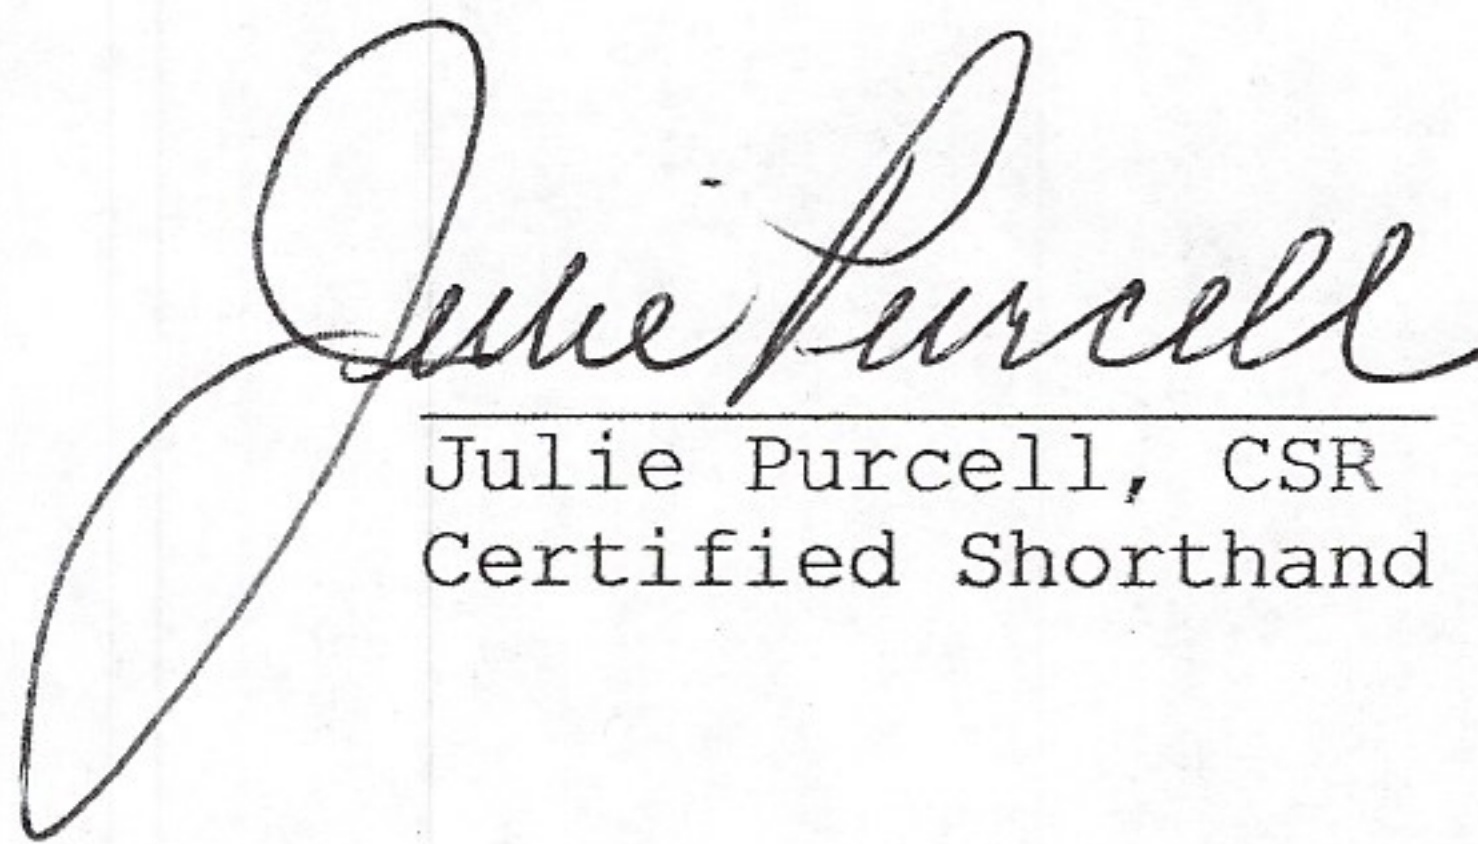 Julie Purcell
Julie Purcell, CSR
Certified Shorthand